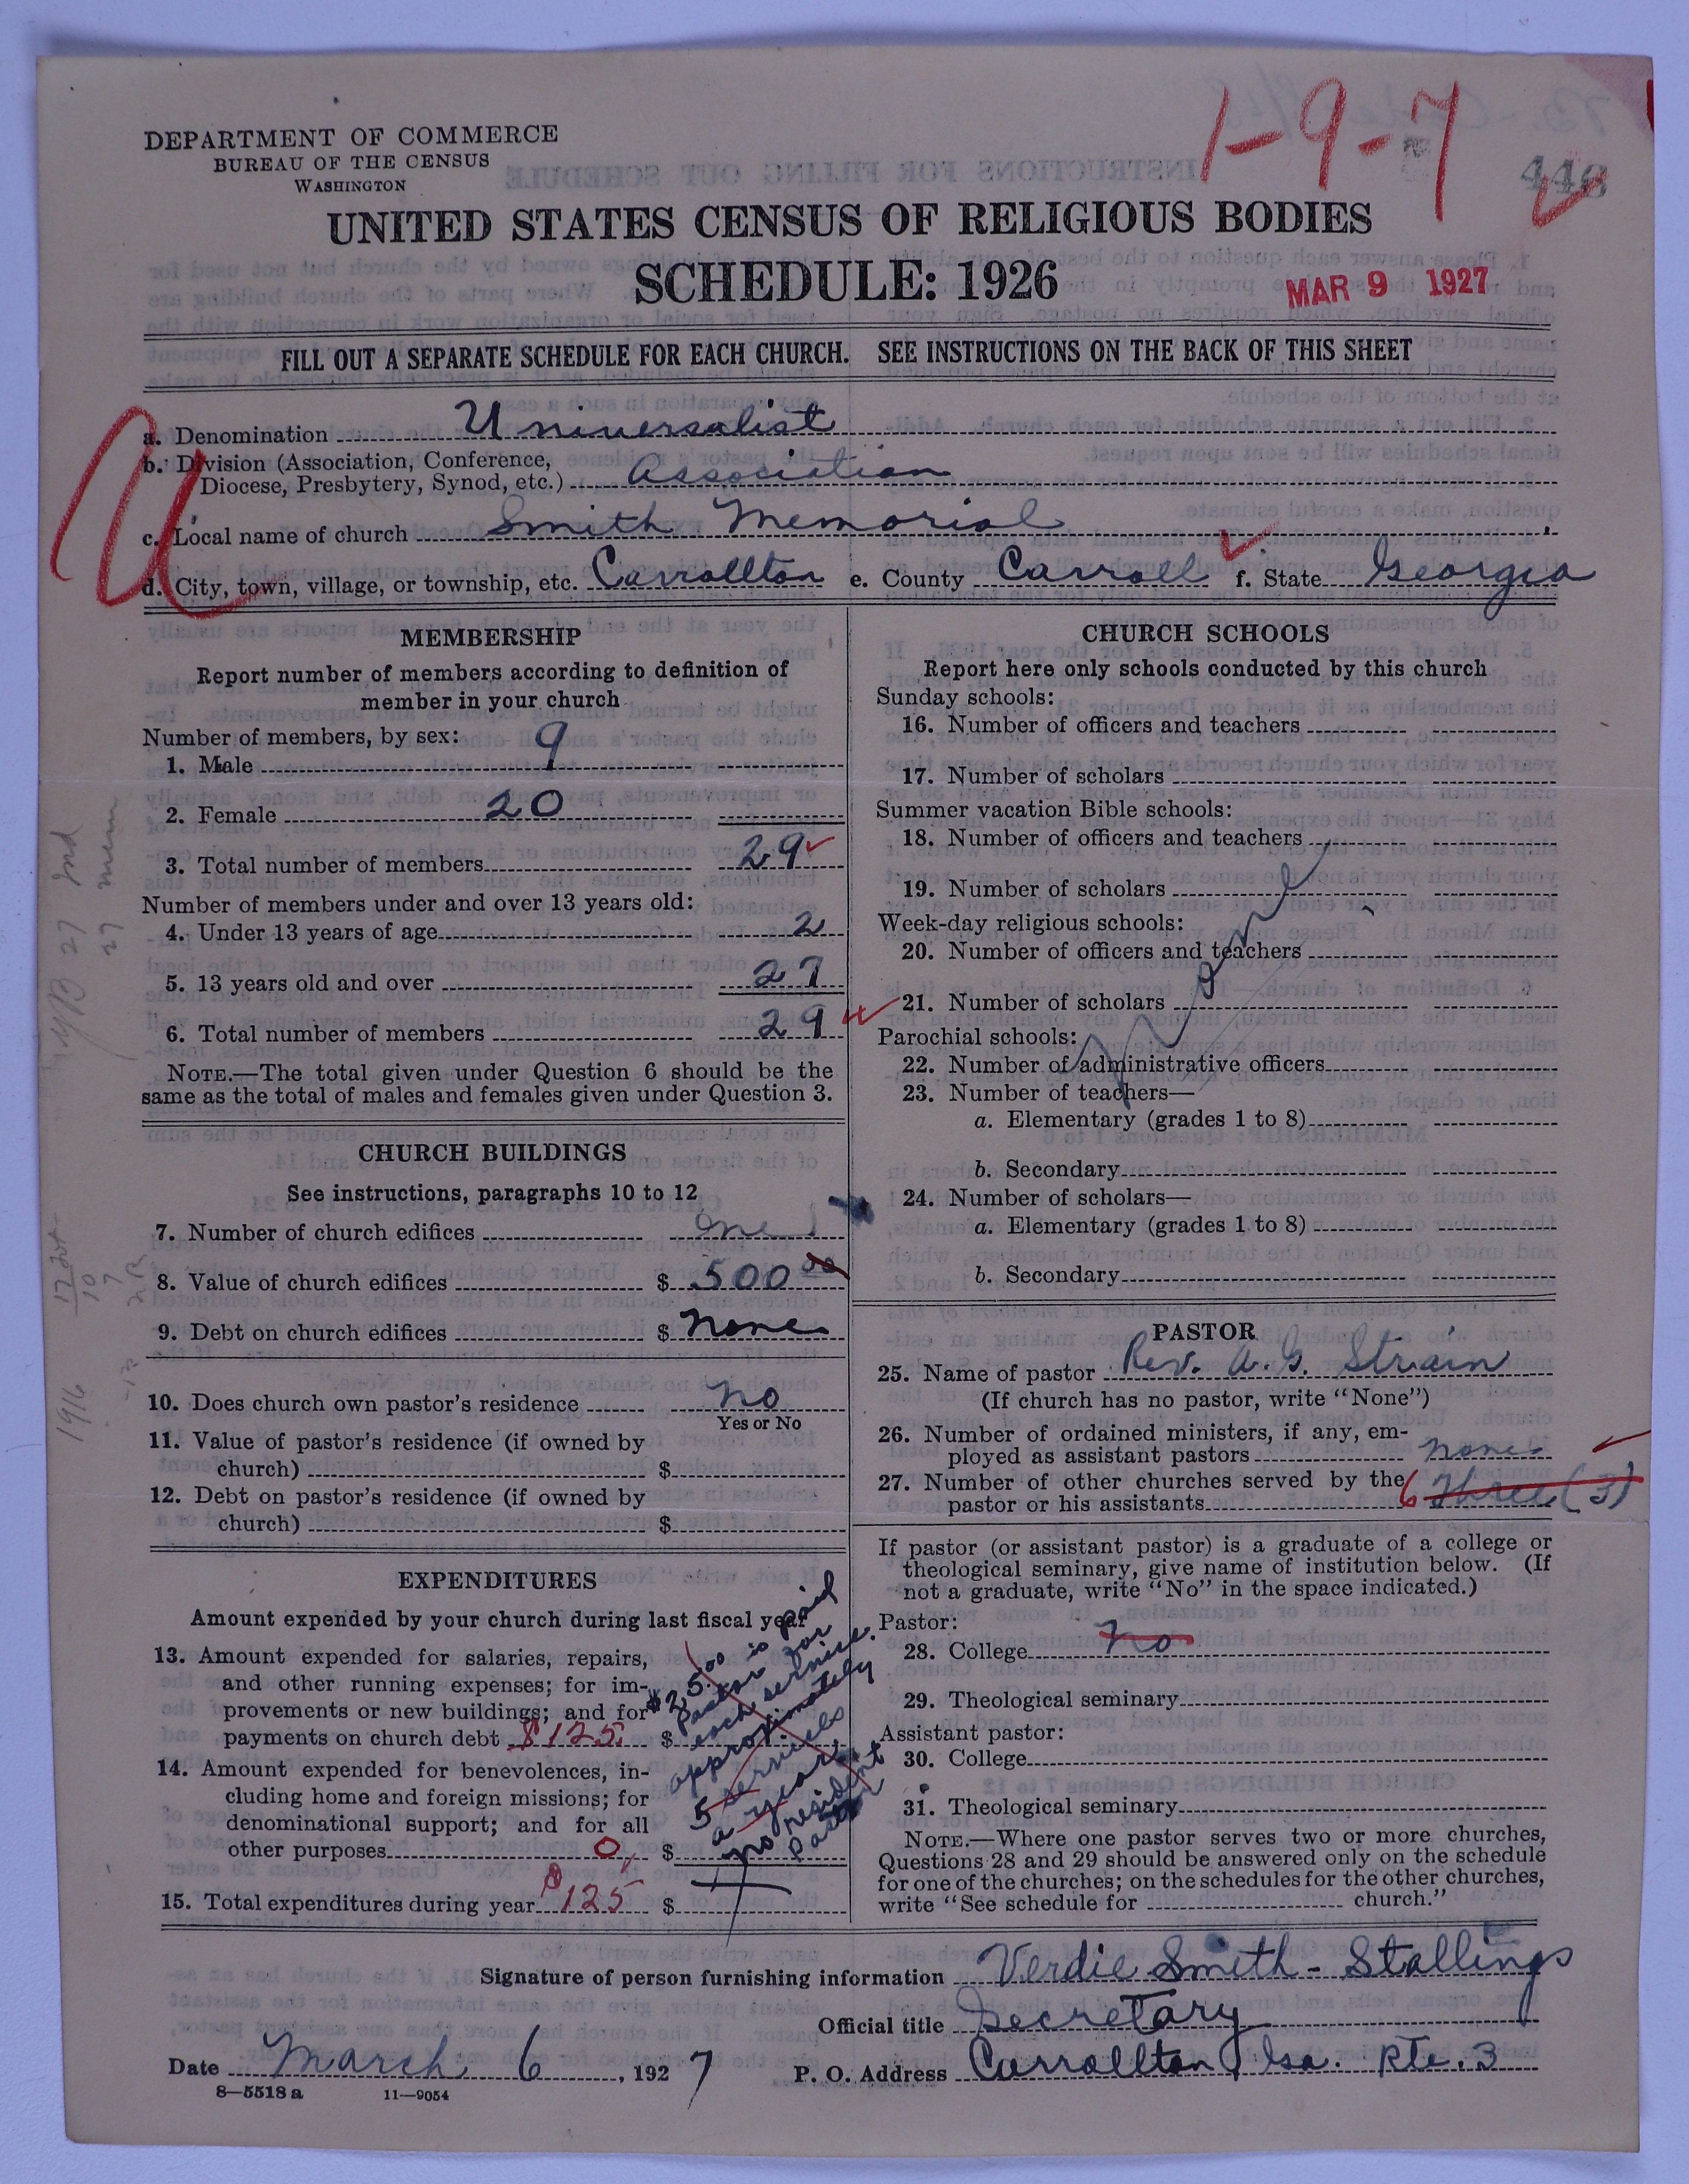 1-9-7
446
DEPARTMENT OF COMMERCE
BUREAU OF THE CENSUS
WASHINGTON
UNITED STATES CENSUS OF RELIGIOUS BODIES
SCHEDULE: 1926
MAR 9 1927
FILL OUT A SEPARATE SCHEDULE FOR EACH CHURCH. SEE INSTRUCTIONS ON THE BACK OF THIS SHEET
a. Denomination Universalist
b. Division (Association, Conference,
Diocese, Presbytery, Synod, etc.) Association
c. Local name of church Smith Memorial
d. City, town, village, or township, etc. Carrollton e. County Carroll f. State Georgia
MEMBERSHIP
Report number of members according to definition of
member in your church
Number of members, by sex:
1. Male 9
2. Female 20
3. Total number of members 29
Number of members under and over 13 years old:
4. Under 13 years of age 2
5. 13 years old and over 27
6. Total number of members 29
NOTE.—The total given under Question 6 should be the
same as the total of males and females given under Question 3.
CHURCH BUILDINGS
See instructions, paragraphs 10 to 12
7. Number of church edifices one
8. Value of church edifices $ 500 00
9. Debt on church edifices $ none
10. Does church own pastor's residence no
Yes or No
11. Value of pastor's residence (if owned by
church) $
12. Debt on pastor's residence (if owned by
church) $
EXPENDITURES
Amount expended by your church during last fiscal year
13. Amount expended for salaries, repairs,
and other running expenses; for im-
provements or new buildings; and for
payments on church debt $125. $
14. Amount expended for benevolences, in-
cluding home and foreign missions; for
denominational support; and for all
other purposes 0 $
15. Total expenditures during year $125 $
$25.00 is paid
Pastor for
each service.
approximately
5 services
a year.
no resident
Pastor
CHURCH SCHOOLS
Report here only schools conducted by this church
Sunday schools:
16. Number of officers and teachers
17. Number of scholars
Summer vacation Bible schools:
18. Number of officers and teachers
19. Number of scholars
Week-day religious schools:
20. Number of officers and teachers
21. Number of scholars
Parochial schools:
22. Number of administrative officers
23. Number of teachers—
a. Elementary (grades 1 to 8)
b. Secondary
24. Number of scholars—
a. Elementary (grades 1 to 8)
b. Secondary
None
PASTOR
25. Name of pastor Rev. A. G. Strain
(If church has no pastor, write "None")
26. Number of ordained ministers, if any, em-
ployed as assistant pastors none
27. Number of other churches served by the
pastor or his assistants 6 Three (3)
If pastor (or assistant pastor) is a graduate of a college or
theological seminary, give name of institution below. (If
not a graduate, write "No" in the space indicated.)
Pastor:
28. College no
29. Theological seminary
Assistant pastor:
30. College
31. Theological seminary
NOTE.—Where one pastor serves two or more churches,
Questions 28 and 29 should be answered only on the schedule
for one of the churches; on the schedules for the other churches,
write "See schedule for church."
Signature of person furnishing information Verdie Smith-Stallings
Official title Secretary
Date March 6, 1927 P. O. Address Carrollton Ga. Rte. 3
8—5518 a 11—9054
27 mem
1916